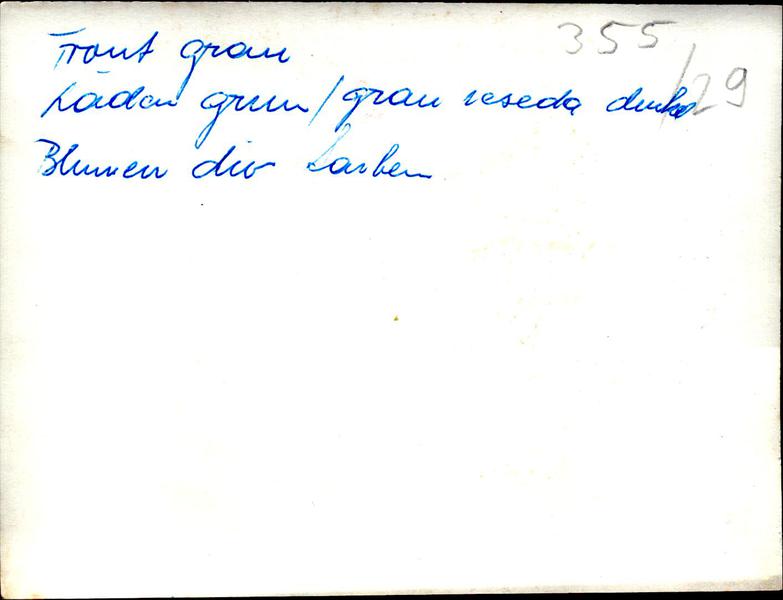 Front grau
355
/29
Läden grün/grau reseda dunkel
Blumen div Farben